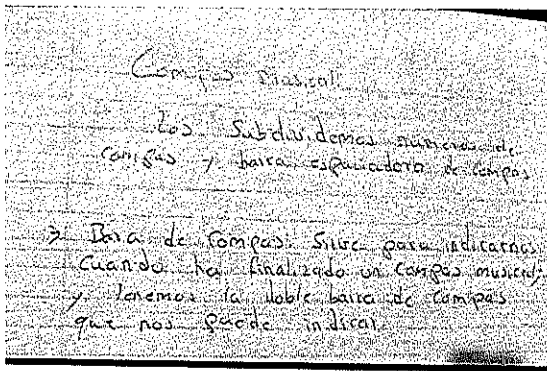 Compas musical
Los Subdividemos numeros de
compas y barra espaciadora de compas
→ Bara de Compas: Sirve para indicarnos
Cuando ha finalizado un compas musical,
y tenemos la doble barra de compas
que nos puede indicar.